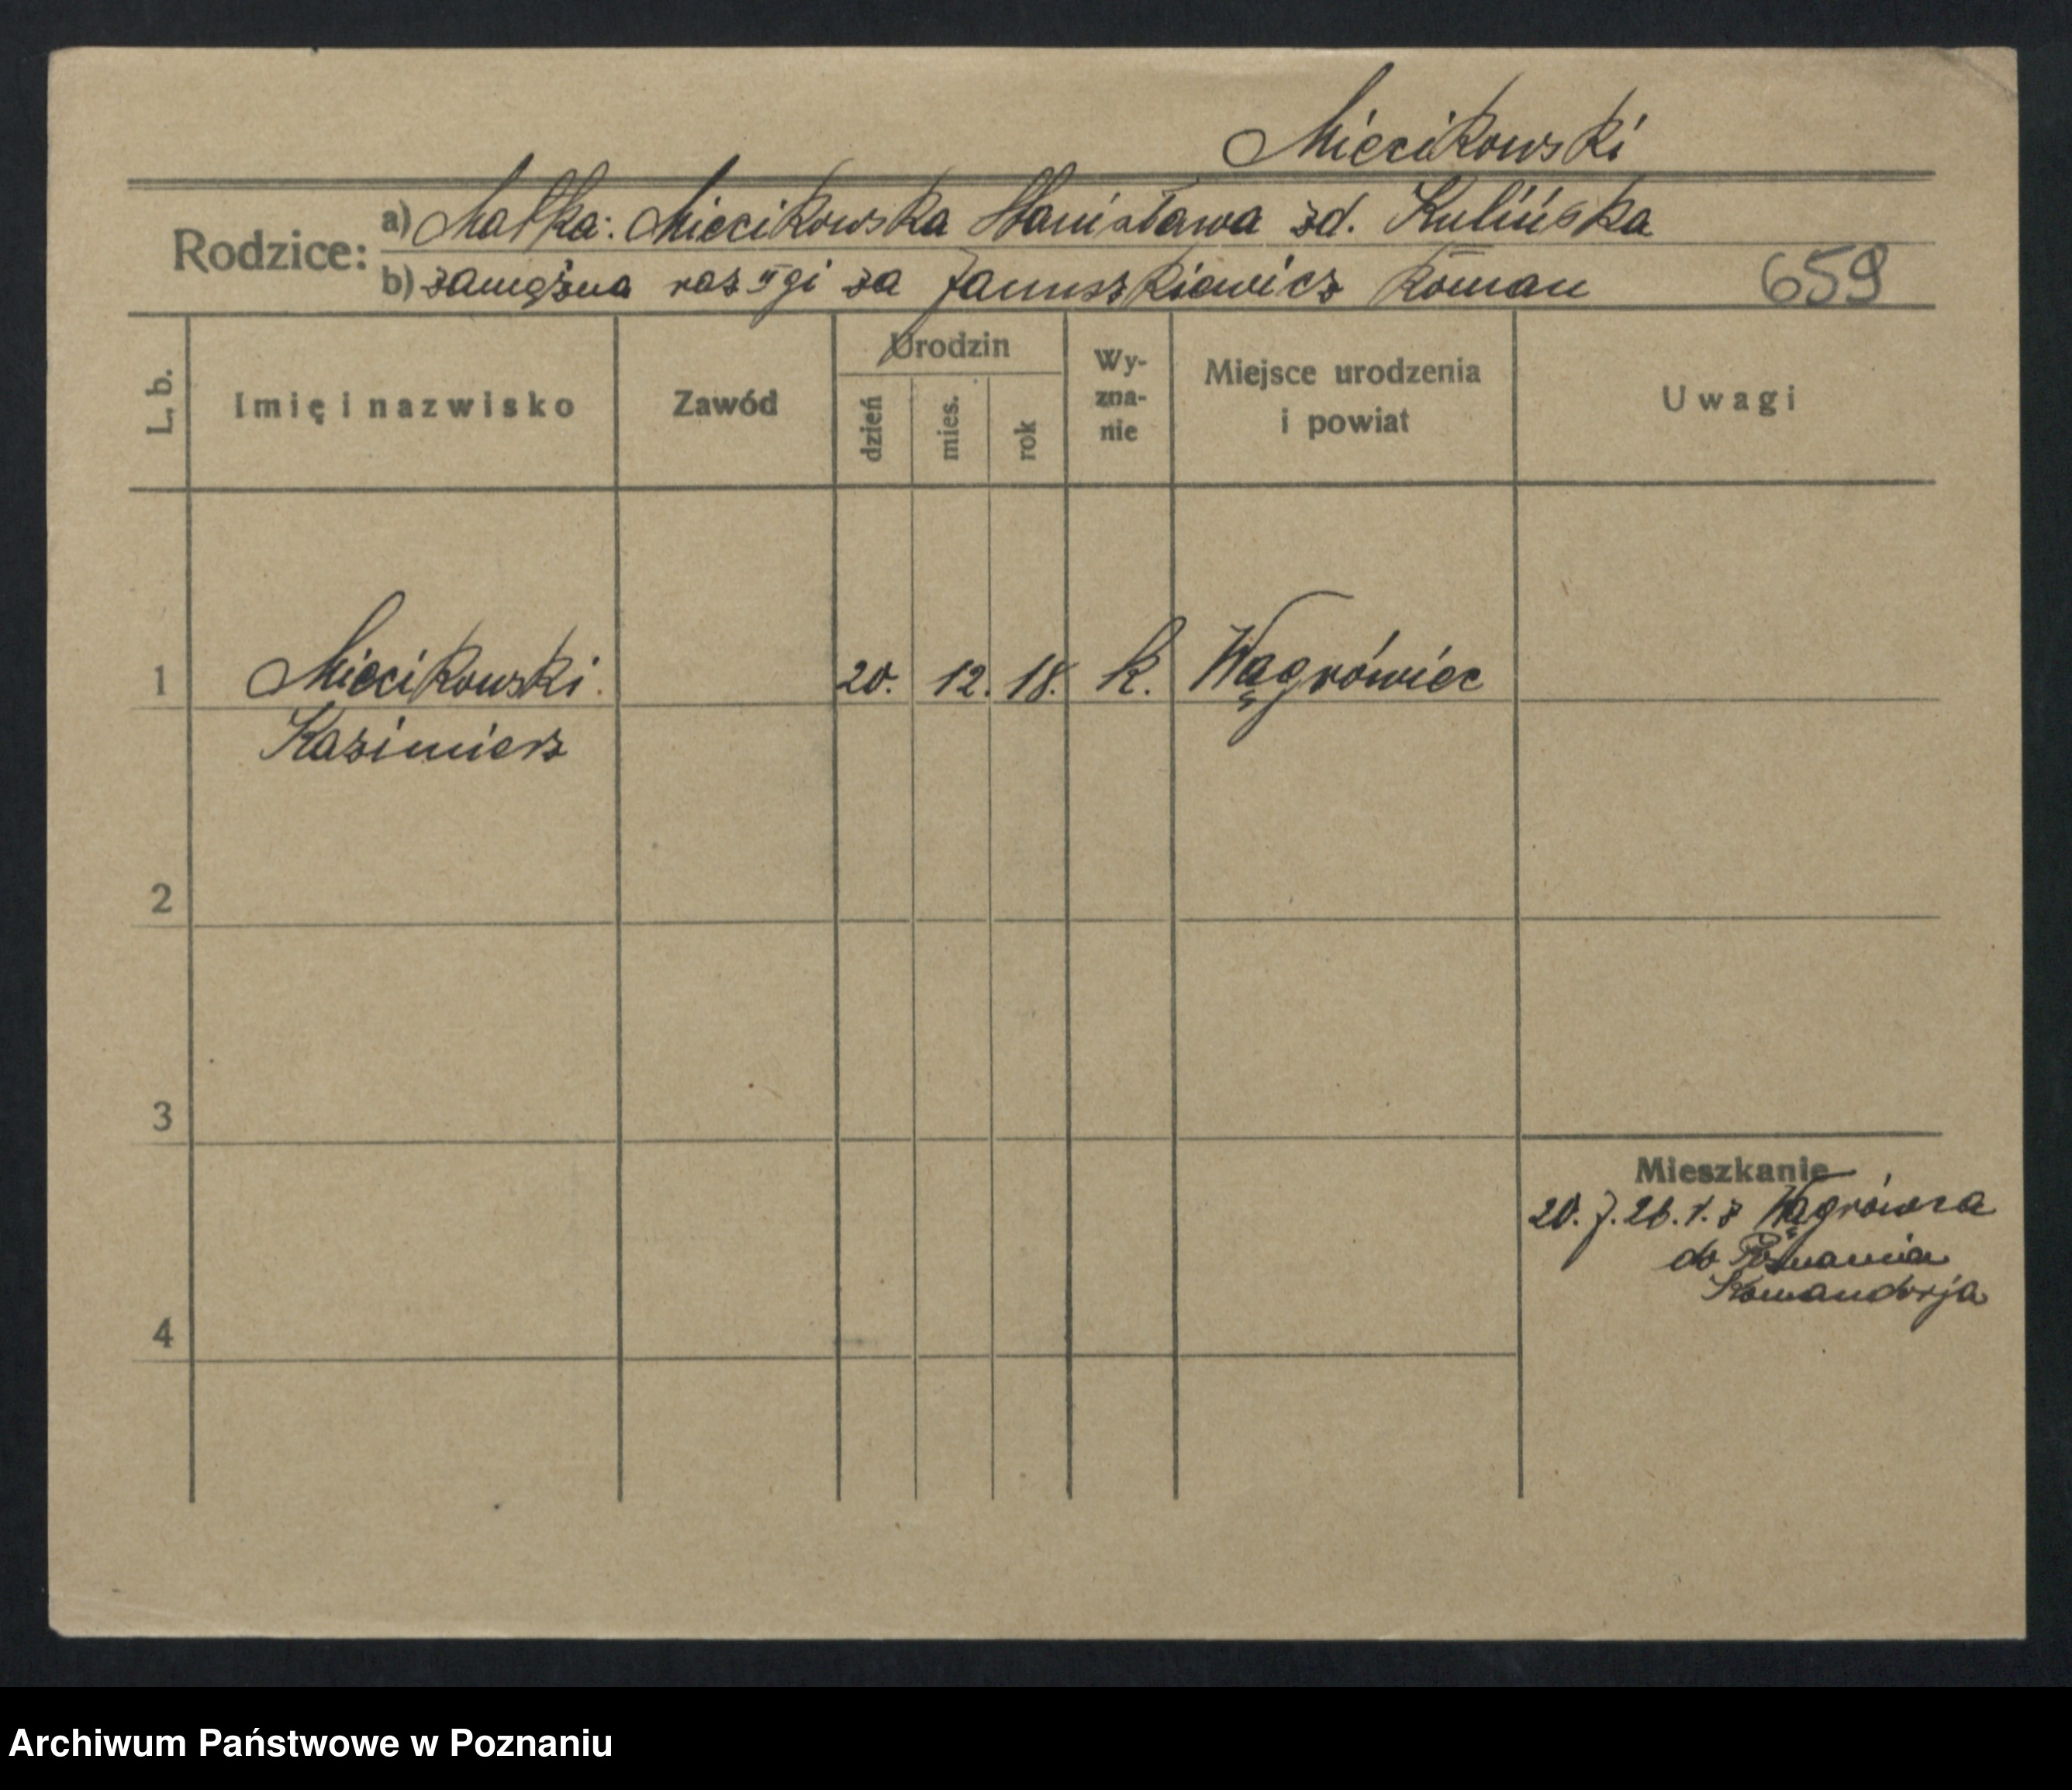 Miecikowski
Rodzice: a) Matka: Miecikowska Stanisława zd. Kulińska
b) zamężna raz IIgi za Januszkiewicz Roman 659
L. b. Imię i nazwisko Zawód Urodzin dzień mies. rok Wy-zna-nie Miejsce urodzenia i powiat Uwagi
1 Miecikowski 20. 12. 18. k. Wągrówiec
Kazimierz
2
3
Mieszkanie
20. 7. 26. t. z Wągrówca
do Poznania
Komandorja
4
Archiwum Państwowe w Poznaniu